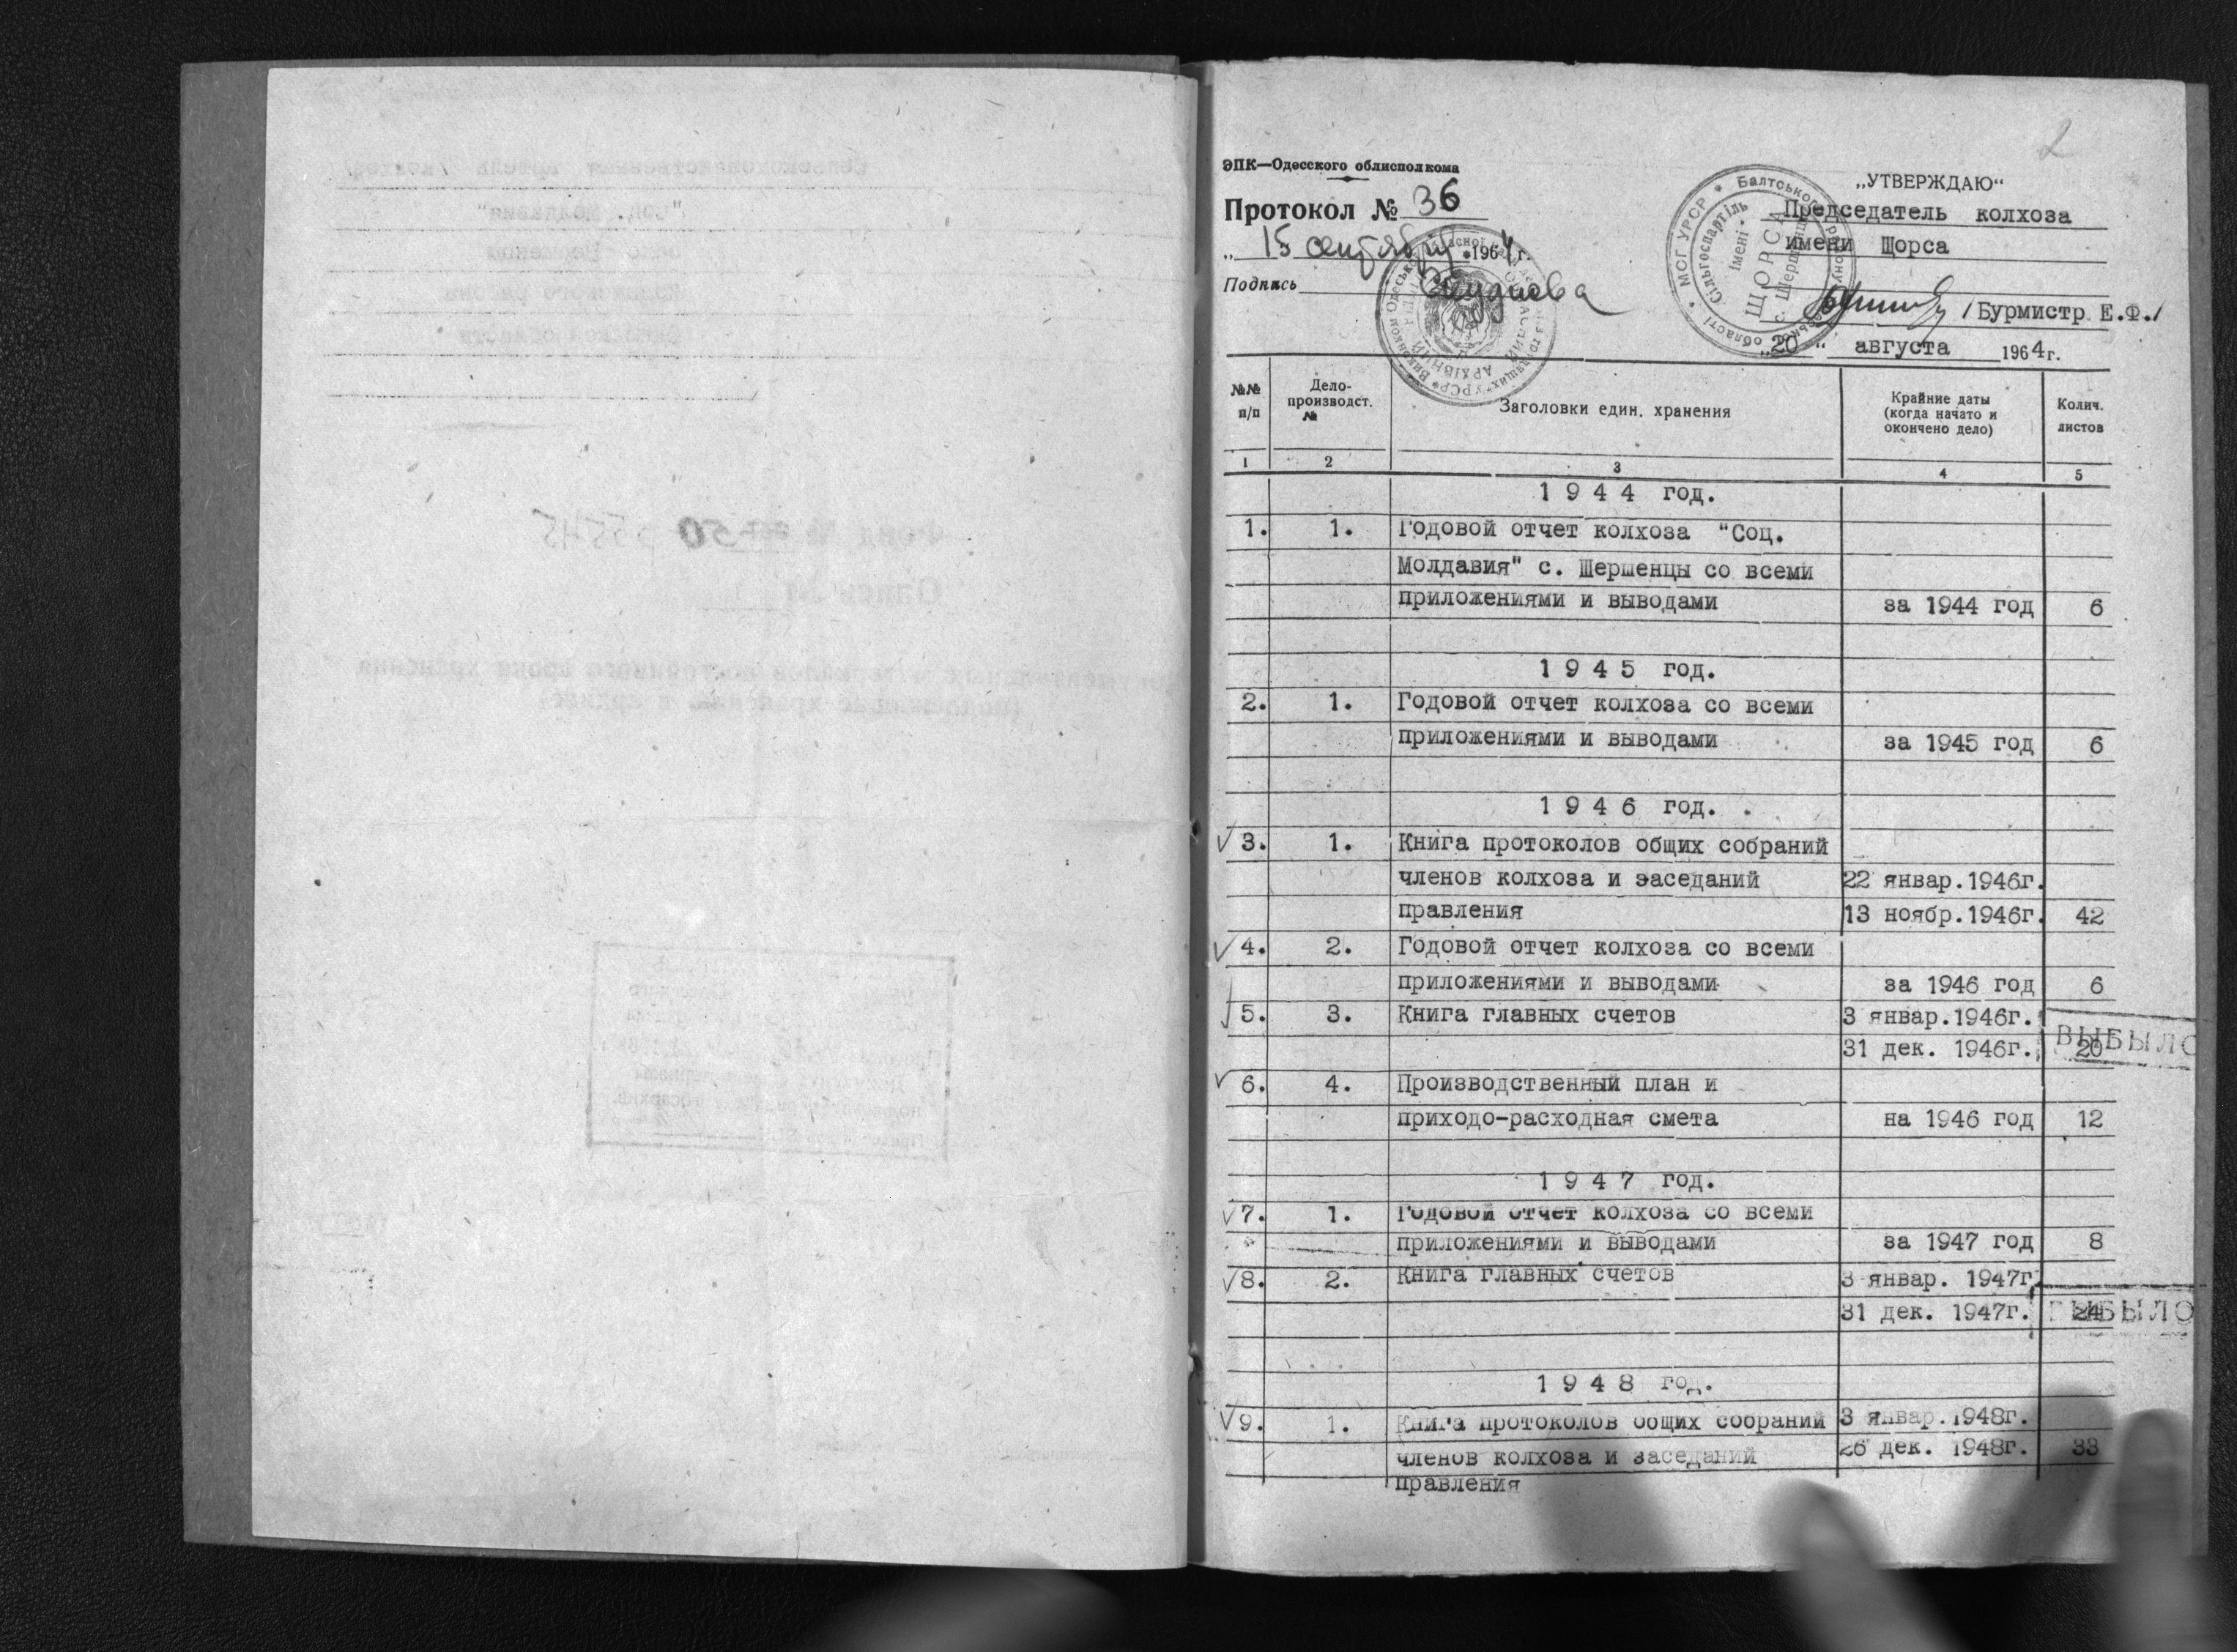 2
ЭПК—Одесского облисполкома
Протокол № 36
„ 15 сентября 1964 г.
Подпись
„УТВЕРЖДАЮ“
Председатель колхоза
имени Щорса
/Бурмистр Е.Ф./
„20“ августа 1964 г.
МСГ УРСР * Балтського району
Сільгоспартіль
імені
ЩОРСА
№№ п/п
Дело-производст. №
Заголовки един. хранения
Крайние даты (когда начато и окончено дело)
Колич. листов
1 2 3 4 5
1944 год.
1. 1. Годовой отчет колхоза "Соц.
Молдавия" с. Шершенцы со всеми
приложениями и выводами за 1944 год 6
1945 год.
2. 1. Годовой отчет колхоза со всеми
приложениями и выводами за 1945 год 6
1946 год.
3. 1. Книга протоколов общих собраний
членов колхоза и заседаний 22 январ.1946г.
правления 13 ноябр.1946г. 42
4. 2. Годовой отчет колхоза со всеми
приложениями и выводами за 1946 год 6
5. 3. Книга главных счетов 3 январ.1946г.
31 дек. 1946г. 20 ВЫБЫЛО
6. 4. Производственный план и
приходо-расходная смета на 1946 год 12
1947 год.
7. 1. Годовой отчет колхоза со всеми
приложениями и выводами за 1947 год 8
8. 2. Книга главных счетов 3 январ. 1947г.
31 дек. 1947г. 24 ВЫБЫЛО
1948 год.
9. 1. Книга протоколов общих собраний 3 январ.1948г.
членов колхоза и заседаний 26 дек. 1948г. 33
правления